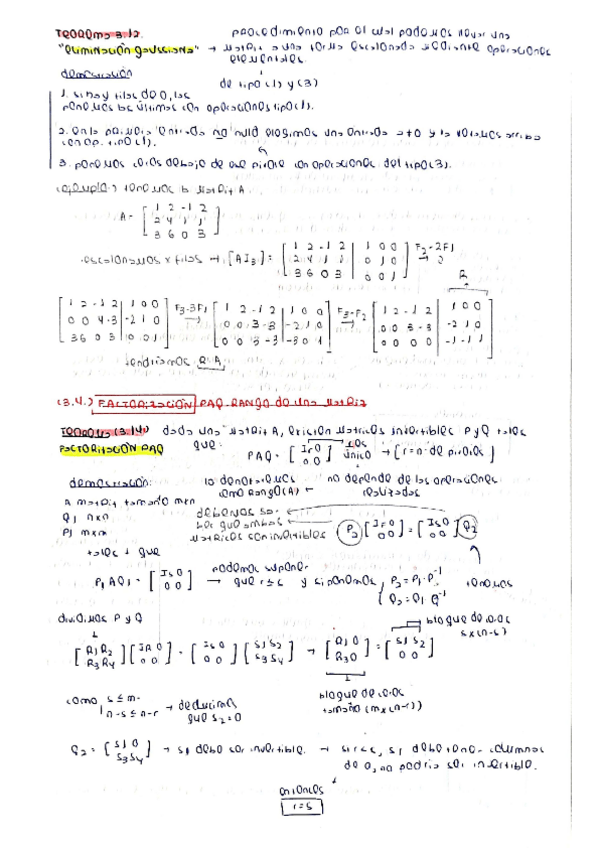 TEOREMA 3.12. procedimiento por el cual podemos llevar una
"eliminación gaussiana" → matriz a una forma escalonada mediante operaciones
elementales.
demostración
de tipo (1) y (3)
1. si hay filas de 0, las
ponemos las últimas con operaciones tipo (1).
2. en la primera entrada no nula elegimos una entrada a≠0 y la
con op. tipo (1).
3. ponemos ceros debajo de ese pivote con operaciones del tipo (3).
ejemplo: tenemos la matriz A
A = [ 1 2 -1 2
2 4 1 1
3 6 0 3 ]
escalonamos x filas → [A I3] = [ 1 2 -1 2 | 1 0 0
2 4 1 1 | 0 1 0
3 6 0 3 | 0 0 1 ] F2-2F1 →
R
[ 1 2 -1 2 | 1 0 0
0 0 4 -3 | -2 1 0
3 6 0 3 | 0 0 1 ] F3-3F1 → [ 1 2 -1 2 | 1 0 0
0 0 3 -3 | -2 1 0
0 0 3 -3 | -3 0 1 ] F3-F2 → [ 1 2 -1 2 | 1 0 0
0 0 3 -3 | -2 1 0
0 0 0 0 | -1 -1 1 ]
tendríamos R·A
(3.4.) FACTORIZACIÓN PAQ. RANGO de una matriz
TEOREMA (3.14) dada una matriz A, existen matrices invertibles P y Q tales
FACTORIZACIÓN PAQ que: PAQ = [ Ir 0
0 0 ] → [r = nº de pivotes]
único
demostración: lo denotaremos no depende de las operaciones
como Rango(A) ← realizadas
A matriz tamaño mxn
Q, nxn
P, mxm
debemos sa-
ber que ambas
matrices son invertibles
P2 [ Ir 0
0 0 ] = [ Is 0
0 0 ] Q2
tales que
P1 A Q1 = [ Is 0
0 0 ] → podemos suponer
que r ≤ s y si ponemos, P2 = P1·P⁻¹
Q2 = Q1 Q⁻¹
tenemos
dividimos P y Q
bloque de ceros
s x (n-s)
[ R1 R2
R3 R4 ] [ Ir 0
0 0 ] = [ Is 0
0 0 ] [ S1 S2
S3 S4 ] → [ R1 0
R3 0 ] = [ S1 S2
0 0 ]
bloque de ceros
tamaño (m x (n-r))
como s ≤ m
n-s ≤ n-r → deducimos
que S2 = 0
Q2 = [ S1 0
S3 S4 ] → S1 debe ser invertible. → si r<s, S1 debe tener columnas
de 0, no podría ser invertible.
entonces
r = s